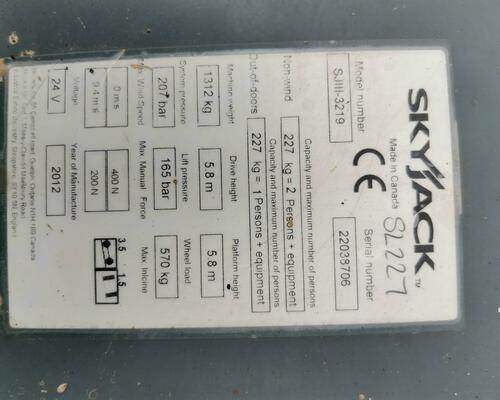 SKYJACK™
Made in Canada SL227
Model number Serial number
SJIII-3219 22038706
CE
Capacity and maximum number of persons
Non-wind 227 kg = 2 Persons + equipment
Capacity and maximum number of persons
Out-of-doors 227 kg = 1 Persons + equipment
Machine weight Drive height Platform height
1312 kg 5.8 m 5.8 m
System pressure Lift pressure Wheel load
207 bar 165 bar 570 kg
Max Wind Speed Max Manual Force Max Incline
0 ms 400 N 3.5 1.5
200 N
Voltage Year of Manufacture
24 V 2012